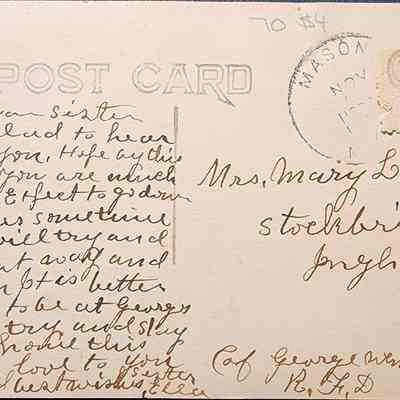 70 $4
POST CARD
MASON
NOV
ear sister
lad to hear
you. Hope by this
you are much
Expect to go down
us sometime
will try and
t way and
It is better
to be at Georges
try and stay
home this
love to you
sister
best wishes, Ella
Mrs. Mary L
Stockbri
Ingh
Caf George
R.F.D